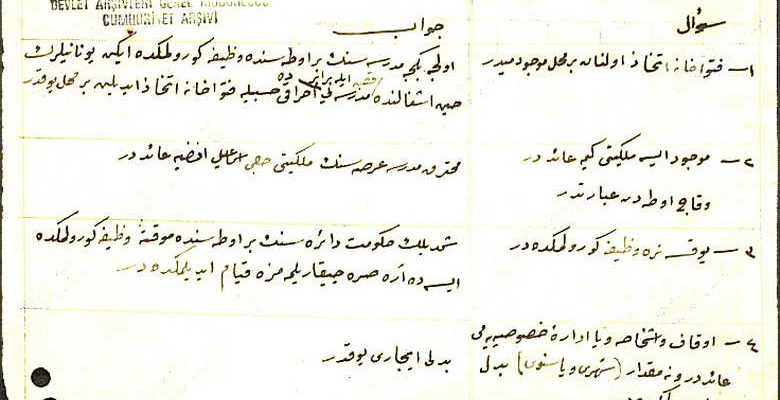 DEVLET ARŞİVLERİ GENEL MÜDÜRLÜĞÜ
CUMHURİYET ARŞİVİ
سؤال
جواب
١— فتواخانه اتخاذ اولنان بر محل موجودمیدر
اولجه یكیجه مدرسه سنك بر اوطه سنده وظیفه كورولمكده ایكن یونانیلرك
حین اشغالنده مدرسه احراقی حسبیله فتواخانه اتخاذ ایدیلن بر محل یوقدر
٢— موجود ایسه ملكیتی كیمه عائددر
وقاچ اوطه دن عبارتدر
محترق مدرسه عرصه سنك ملكیتی حاجی اسماعیل افندیه عائددر
٣— یوقسه نره ده وظیفه كورولمكده در
شمدیلك حكومت دائره سنك بر اوطه سنده موقةً وظیفه كورولمكده
ایسه ده آره صره چیقاریلمه مزه قیام ایدیلمكده در
٤— اوقاف و اشخاصه و یا اداره خصوصیه یه می
عائددر و نه مقدار (شهری و یا سنوی) بدل
بدل ایجاری یوقدر